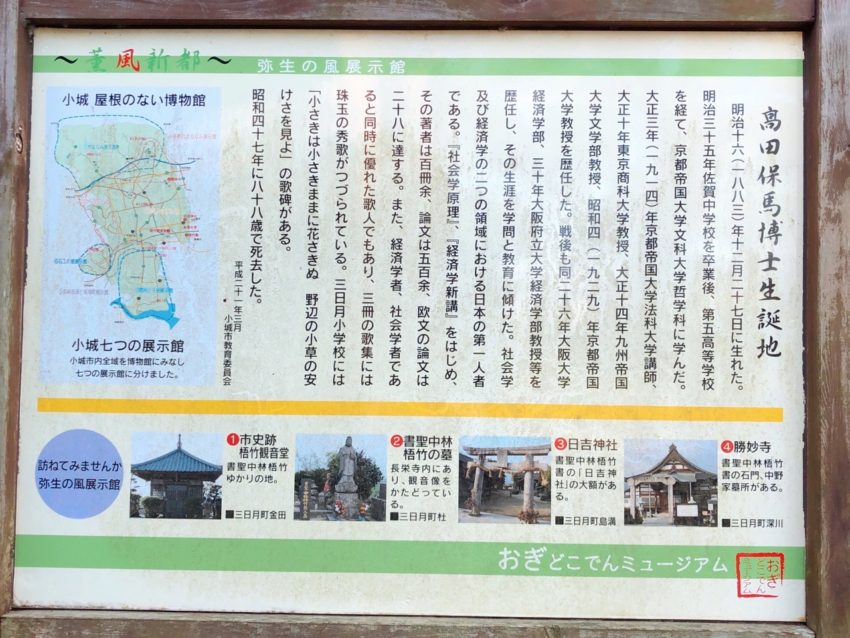 ～薫風新都～
弥生の風展示館
高田保馬博士生誕地
明治十六（一八八三）年十二月二十七日に生れた。
明治三十五年佐賀中学校を卒業後、第五高等学校
を経て、京都帝国大学文科大学哲学科に学んだ。
大正三年（一九一四）年京都帝国大学法科大学講師、
大正十年東京商科大学教授、大正十四年九州帝国
大学文学部教授、昭和四（一九二九）年京都帝国
大学教授を歴任した。戦後も同二十六年大阪大学
経済学部、三十年大阪府立大学経済学部教授等を
歴任し、その生涯を学問と教育に傾けた。社会学
及び経済学の二つの領域における日本の第一人者
である。『社会学原理』、『経済学新講』をはじめ、
その著者は百冊余、論文は五百余、欧文の論文は
二十八に達する。また、経済学者、社会学者であ
ると同時に優れた歌人でもあり、三冊の歌集には
珠玉の秀歌がつづられている。三日月小学校には
「小さきは小さきままに花さきぬ 野辺の小草の安
けさを見よ」の歌碑がある。
昭和四十七年に八十八歳で死去した。
平成二十一年三月
小城市教育委員会
小城 屋根のない博物館
小城七つの展示館
小城市内全域を博物館にみなし
七つの展示館に分けました。
訪ねてみませんか
弥生の風展示館
1 市史跡
梧竹観音堂
書聖中林梧竹
ゆかりの地。
■三日月町金田
2 書聖中林
梧竹の墓
長栄寺内にあ
り、観音像を
かたどってい
る。
■三日月町杜
3 日吉神社
書聖中林梧竹
書の「日吉神
社」の大額があ
る。
■三日月町島溝
4 勝妙寺
書聖中林梧竹
書の石門、中野
家墓所がある。
■三日月町深川
おぎどこでんミュージアム
おぎ
どこでん
ミュージアム